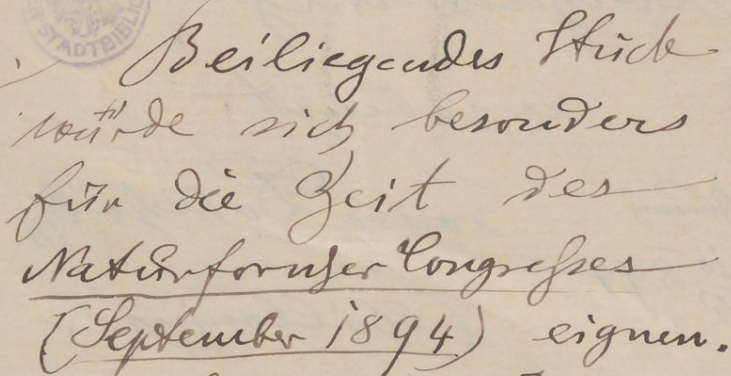 STADTBIBL
Beiliegendes Stück
würde sich besonders
für die Zeit des
Naturforscher Congresses
(September 1894) eignen.